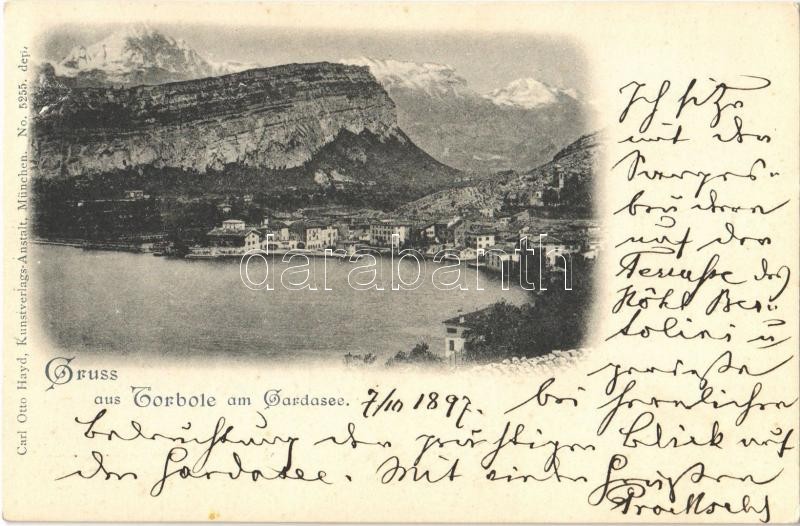 Carl Otto Hayd, Kunstverlags-Anstalt, München. No. 5255. dep.
darabanth
Gruss
aus Torbole am Gardasee.
7/10 1897.
Ich sitze
mit den
auf der
Terrasse des
Hôtl Ber-
tolini u
genieße
bei herrlicher
Beleuchtung den prächtigen Blick auf
den Gardasee. Mit vielen Grüßen